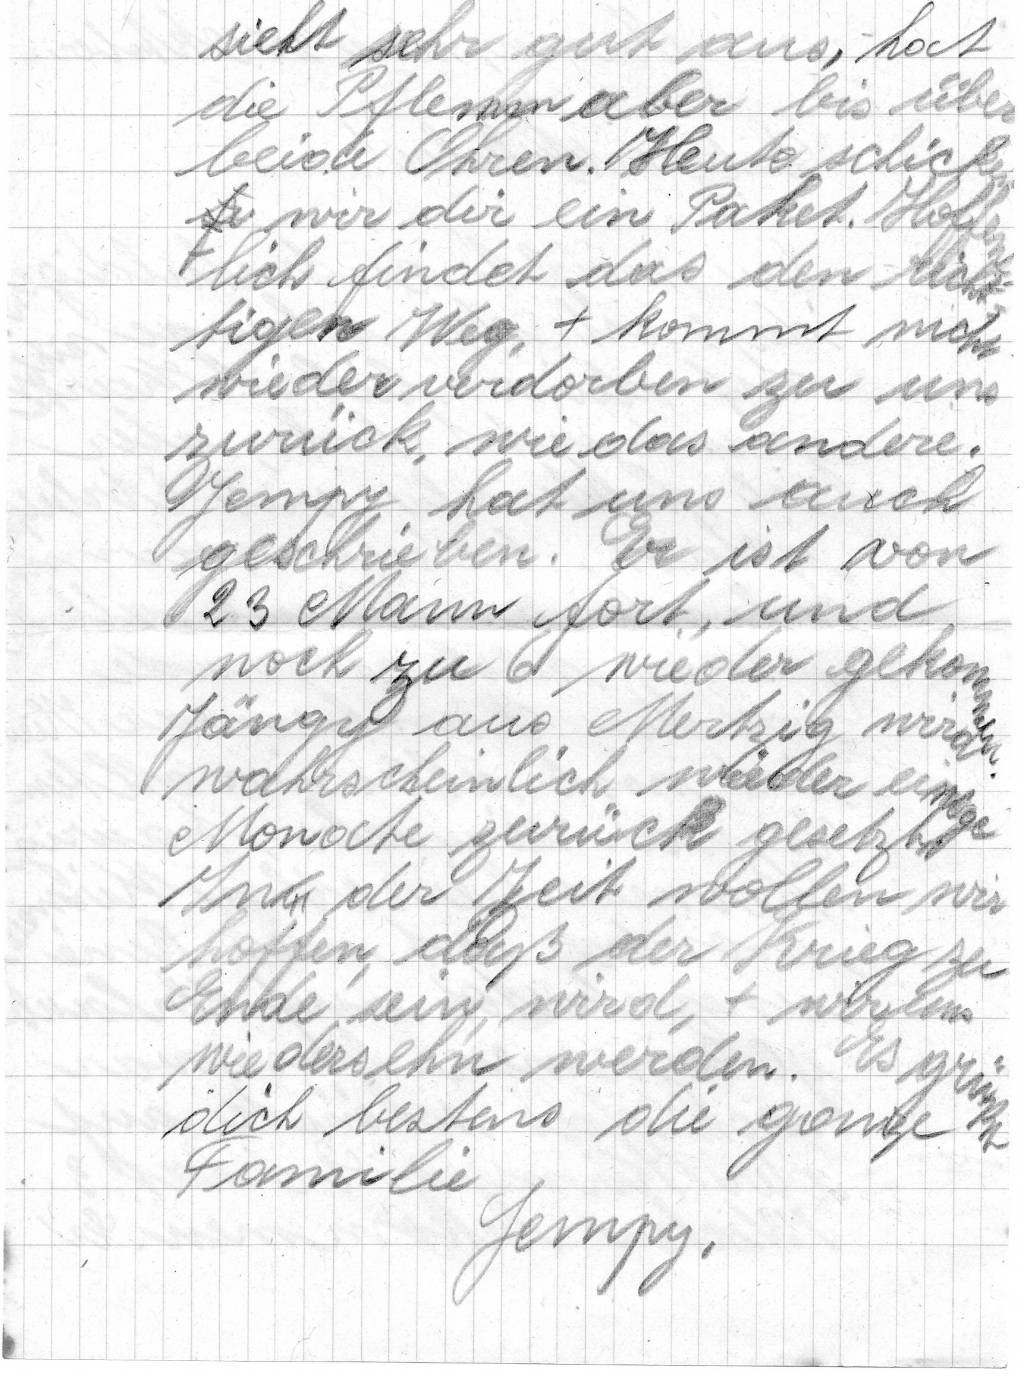 sieht sehr gut aus, hat
die Pflemm aber bis über
beide Ohren. Heute schick
wir dir ein Paket. Hoffent
lich findet das den rich
tigen Weg, + kommt nicht
wieder verdorben zu uns
zurück, wie das andere.
Jempy hat uns auch
geschrieben. Er ist von
23 Mann fort, und
noch zu 6 wieder gekommen.
Jängy aus Mertzig wird
wahrscheinlich wieder einige
Monate zurück gesetzt
In der Zeit wollen wir
hoffen, daß der Krieg zu
Ende sein wird, + wir uns
wiedersehn werden. Es grüßt
dich bestens die ganze
Familie
Jempy.